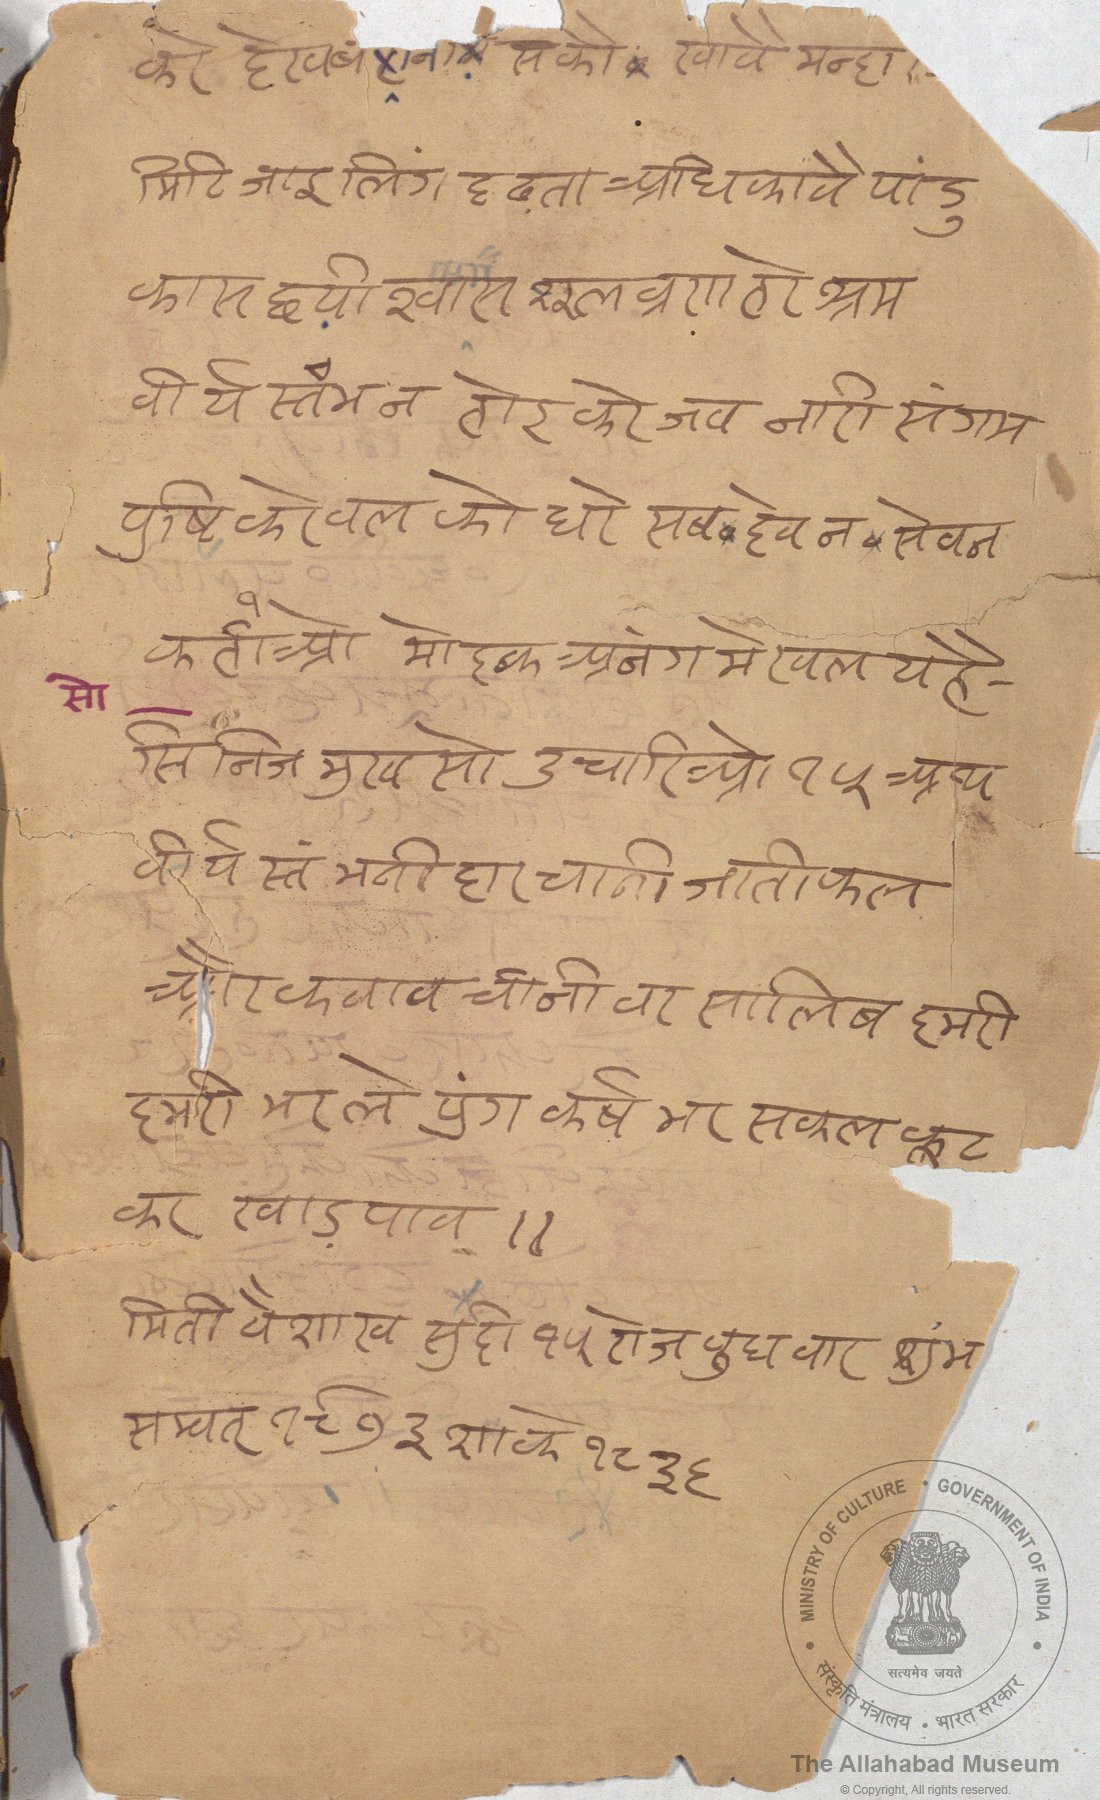 करे हे खावै मन्दा
मिटि जाइ लिंग दृढता अधिकावै पांडु
कास छयी श्वास शूल व्रण हरे भ्रम
वीर्य स्तंभन होइ करे जव नारी संगम
पुष्टि करे वल को धरे सब देव न सेवन
कर्ता १ मोदक अनंग मेखल यहै-
सो
सि निज मुख सो उचारिओ १५ अथ
वीर्य स्तंभनी दारचीनी जातीफल
और कवाव चीनी वर सालिब हमरी
हमरी भर ले पुंग कर्ष भर सकल कूट
कर खाड़ पाव ॥
मिती वैशाख सुदी १५ रोज वुधवार शुंभ
सम्वत् १९७३ शाके १८३६
MINISTRY OF CULTURE • GOVERNMENT OF INDIA
सत्यमेव जयते
संस्कृति मंत्रालय • भारत सरकार
The Allahabad Museum
© Copyright, All rights reserved.